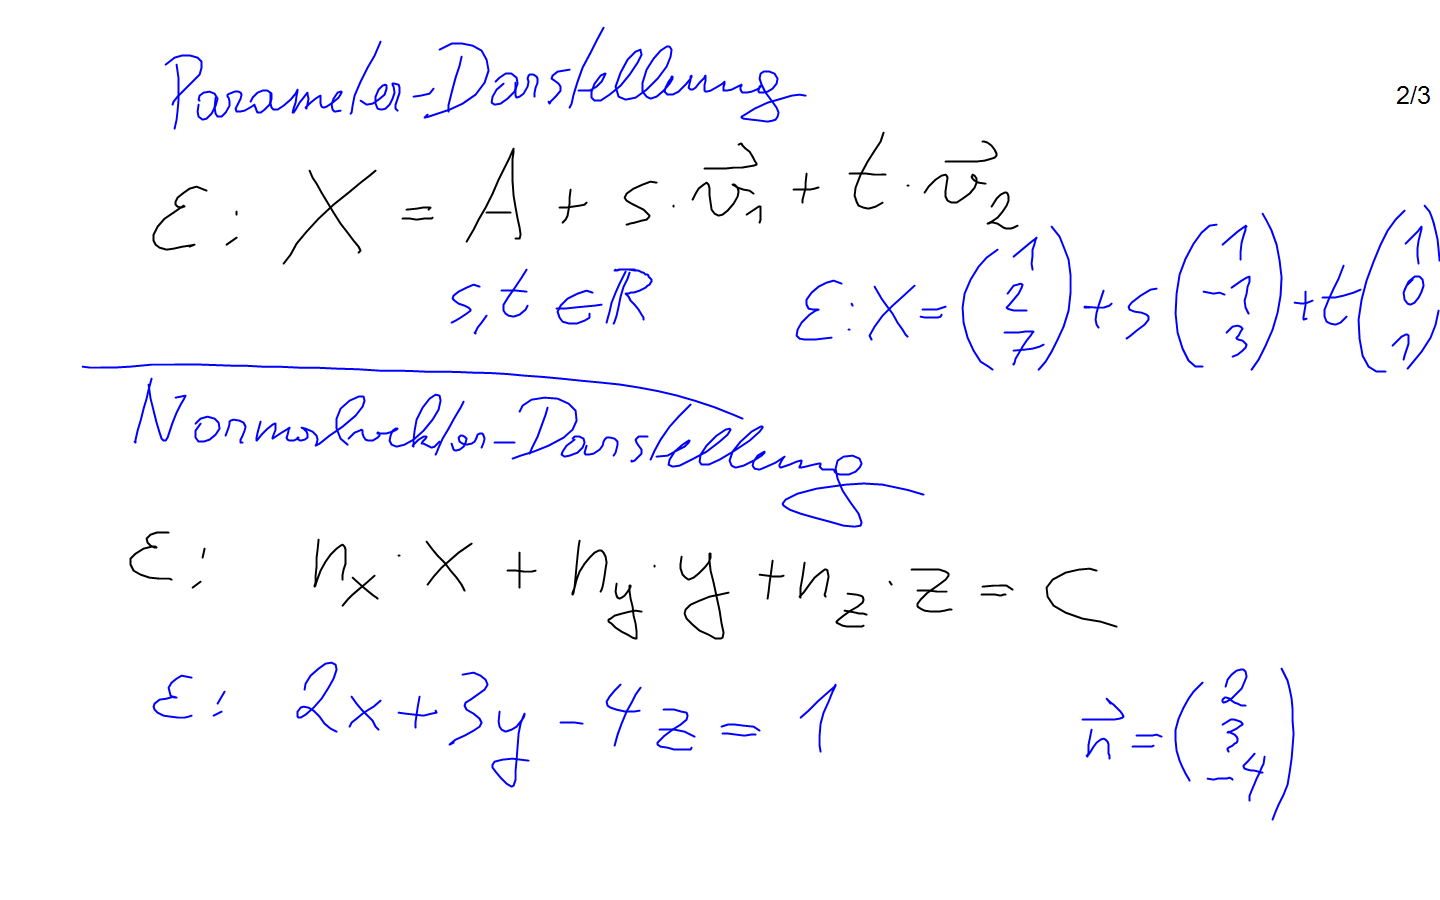 Parameter-Darstellung
2/3
ε: X = A + s·v⃗₁ + t·v⃗₂
s,t ∈ ℝ
ε: X = (1 2 7) + s (1 -1 3) + t (1 0 1)
Normalvektor-Darstellung
ε: nₓ·x + n_y·y + n_z·z = c
ε: 2x + 3y - 4z = 1
n⃗ = (2 3 -4)